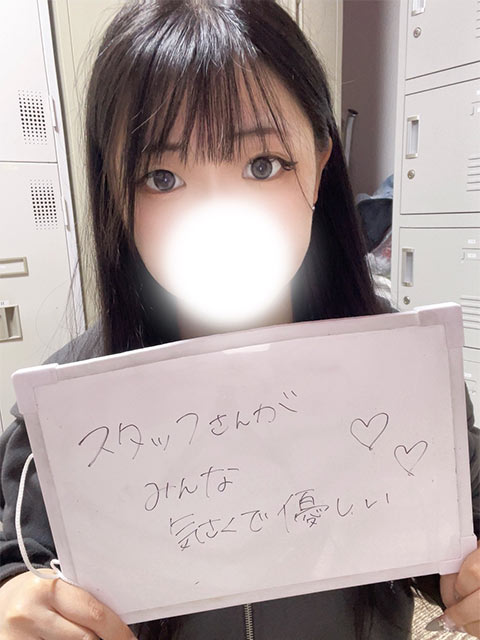 スタッフさんが
みんな
気さくで優しい